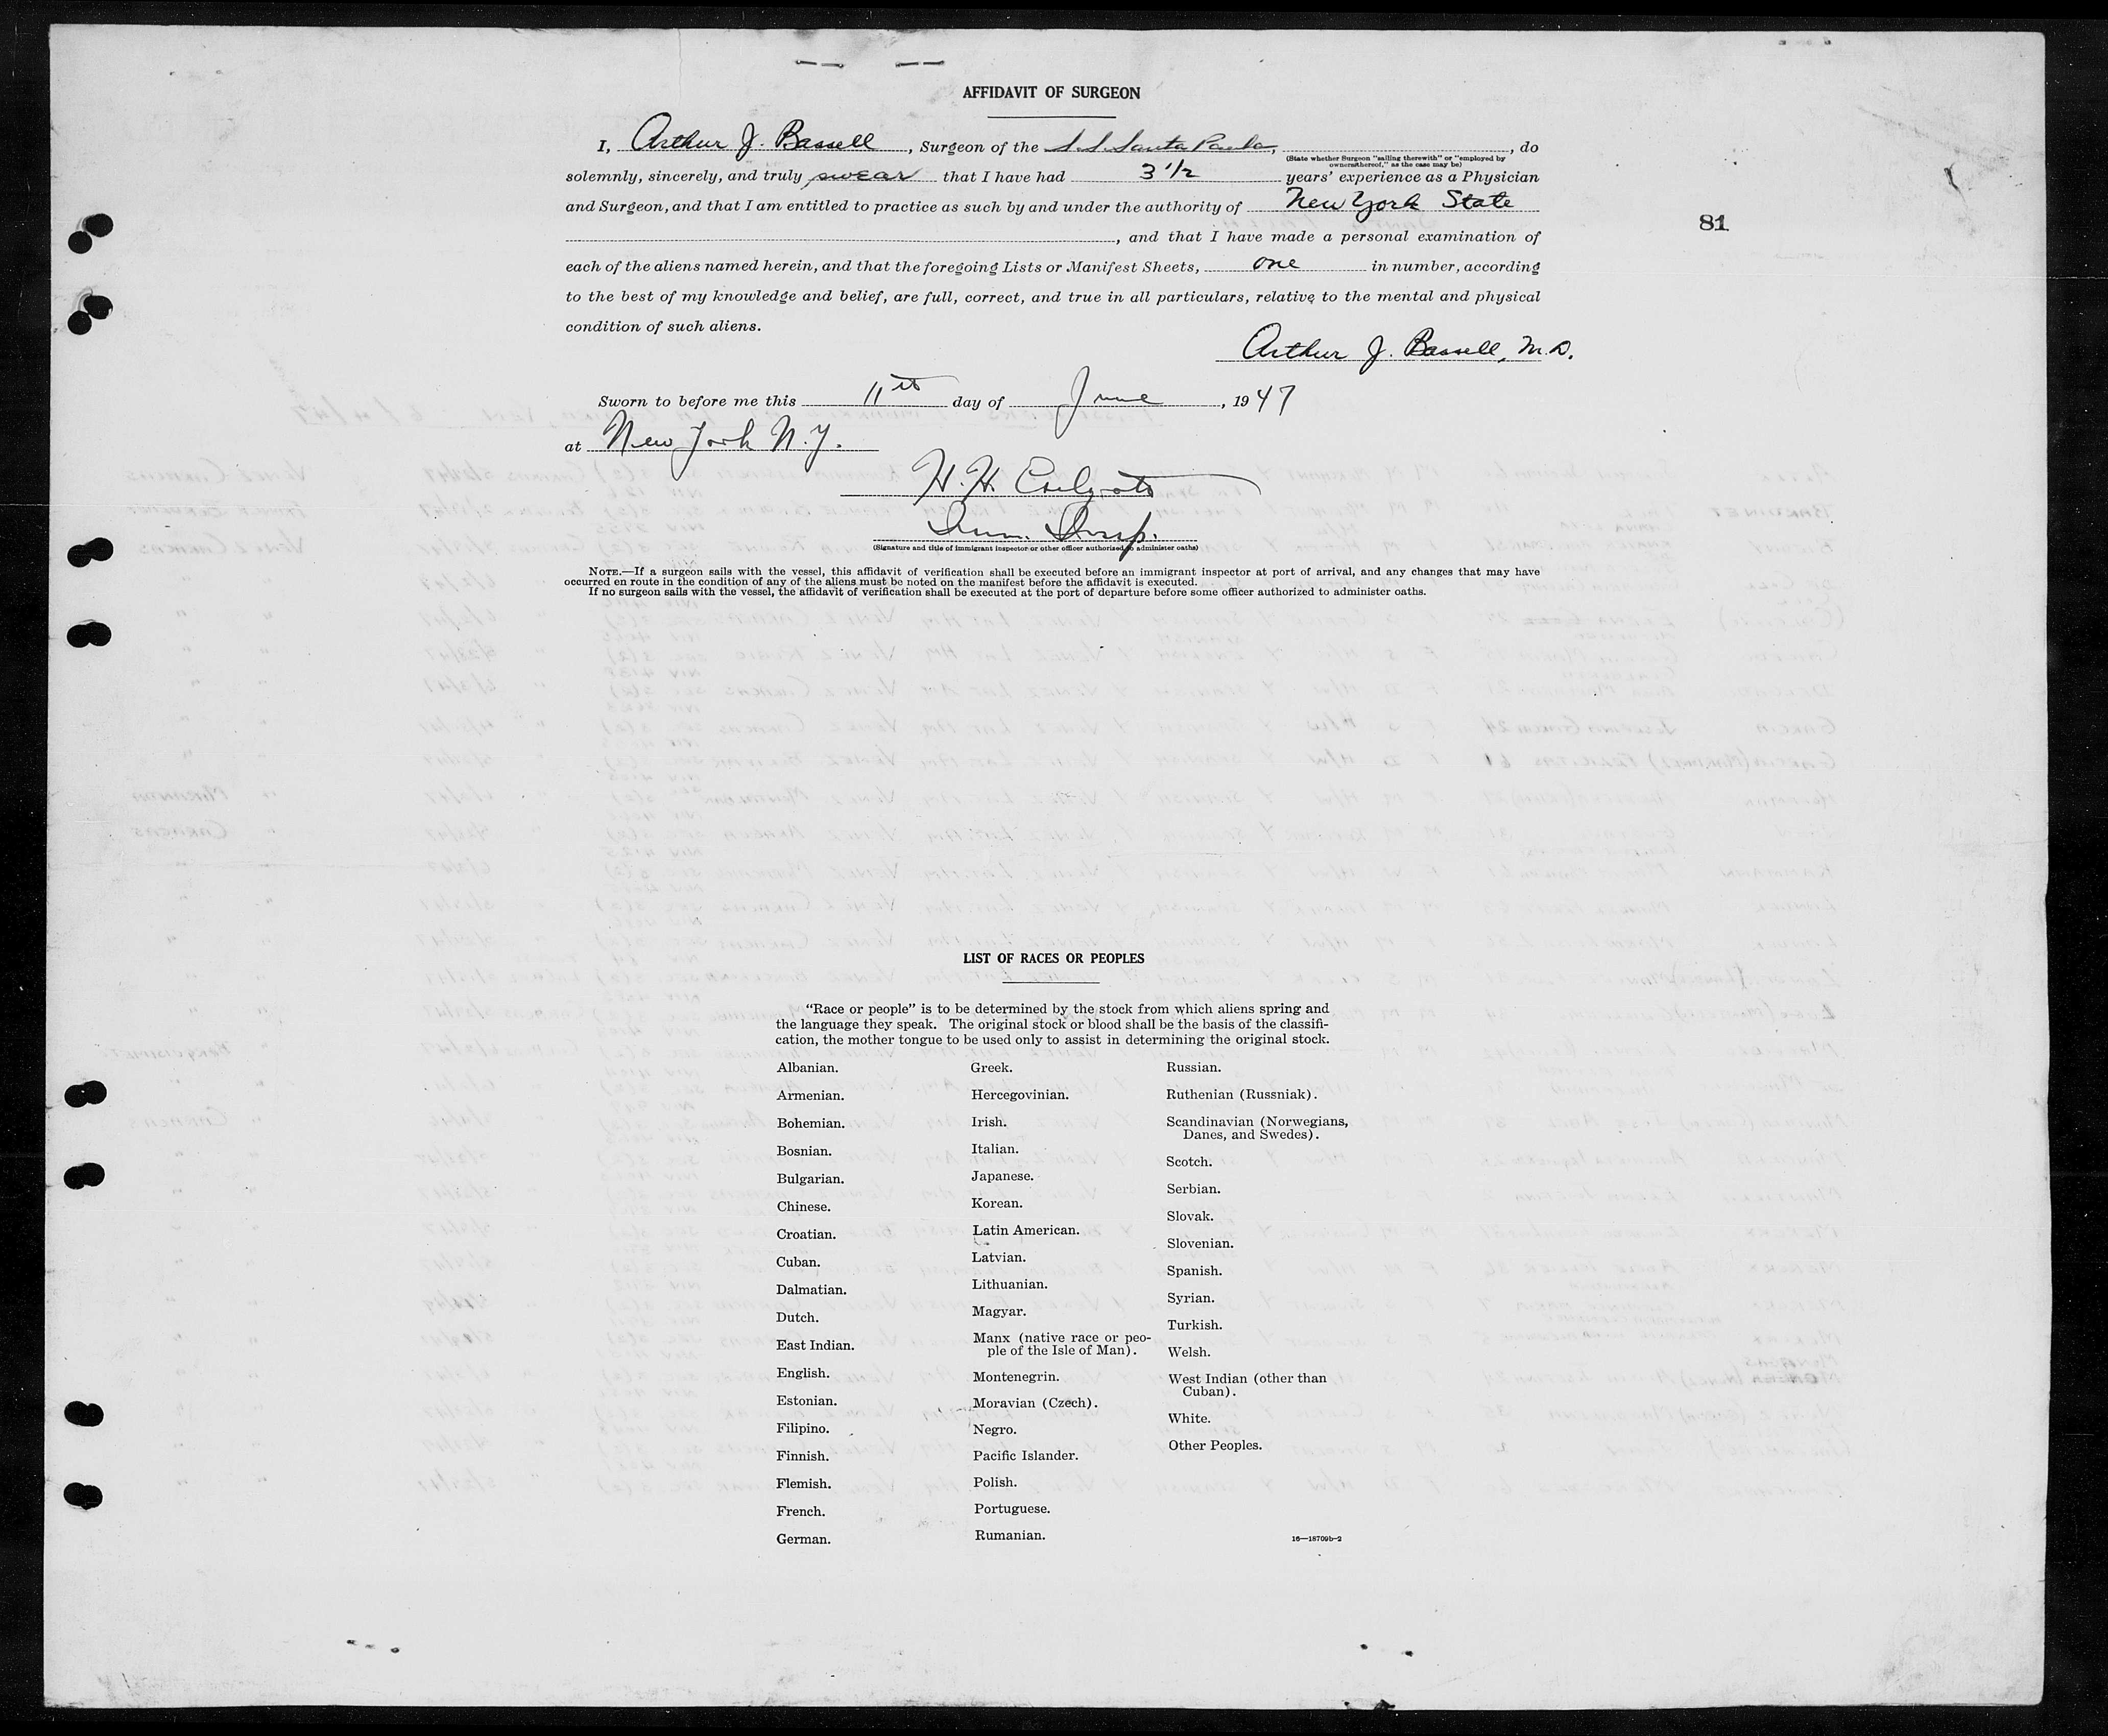 AFFIDAVIT OF SURGEON
I, Arthur J. Bassell, Surgeon of the S.S. Santa Paula, , do
(State whether Surgeon "sailing therewith" or "employed by
owners thereof," as the case may be)
solemnly, sincerely, and truly swear that I have had 3 1/2 years' experience as a Physician
and Surgeon, and that I am entitled to practice as such by and under the authority of New York State
, and that I have made a personal examination of
81
each of the aliens named herein, and that the foregoing Lists or Manifest Sheets, one in number, according
to the best of my knowledge and belief, are full, correct, and true in all particulars, relative to the mental and physical
condition of such aliens.
Arthur J. Bassell, M.D.
Sworn to before me this 11th day of June, 1947
at New York N.Y.
H. H.
Imm. Insp.
(Signature and title of immigrant inspector or other officer authorized to administer oaths)
NOTE.—If a surgeon sails with the vessel, this affidavit of verification shall be executed before an immigrant inspector at port of arrival, and any changes that may have
occurred en route in the condition of any of the aliens must be noted on the manifest before the affidavit is executed.
If no surgeon sails with the vessel, the affidavit of verification shall be executed at the port of departure before some officer authorized to administer oaths.
LIST OF RACES OR PEOPLES
"Race or people" is to be determined by the stock from which aliens spring and
the language they speak. The original stock or blood shall be the basis of the classifi-
cation, the mother tongue to be used only to assist in determining the original stock.
Albanian.
Armenian.
Bohemian.
Bosnian.
Bulgarian.
Chinese.
Croatian.
Cuban.
Dalmatian.
Dutch.
East Indian.
English.
Estonian.
Filipino.
Finnish.
Flemish.
French.
German.
Greek.
Hercegovinian.
Irish.
Italian.
Japanese.
Korean.
Latin American.
Latvian.
Lithuanian.
Magyar.
Manx (native race or peo-
ple of the Isle of Man).
Montenegrin.
Moravian (Czech).
Negro.
Pacific Islander.
Polish.
Portuguese.
Rumanian.
Russian.
Ruthenian (Russniak).
Scandinavian (Norwegians,
Danes, and Swedes).
Scotch.
Serbian.
Slovak.
Slovenian.
Spanish.
Syrian.
Turkish.
Welsh.
West Indian (other than
Cuban).
White.
Other Peoples.
16—18709b-2